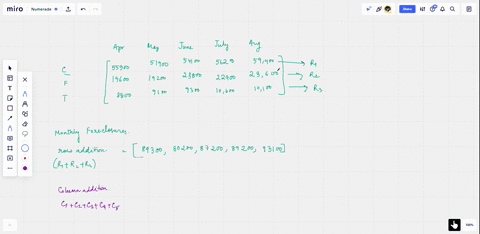 miro Numerade
Apr May June July Aug
C 55900 51900 59,400 → R1
F 19600 19200 23800 23,600 → R2
T 8800 9100 9300 10,100 → R3
Monthly Foreclosures
row addition = [89300, 80200, 87200, 89200, 93100]
(R1+R2+R3)
Column addition
C1+C2+C3+C4+C5
100%